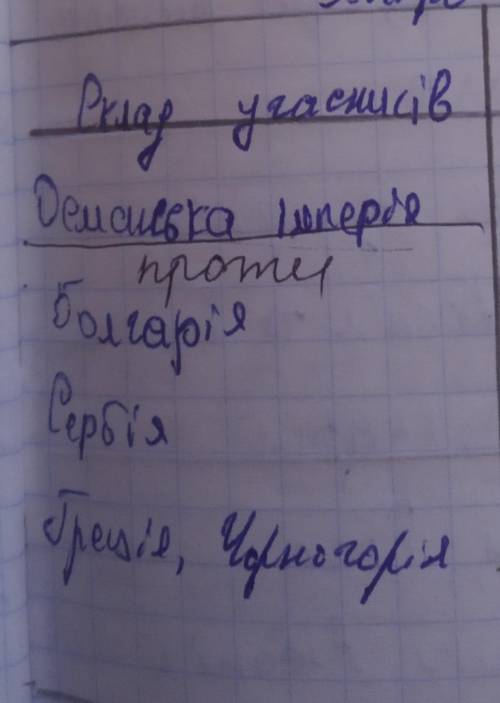 Склад учасників
Османська імперія
проти
Болгарія
Сербія
Греція, Чорногорія